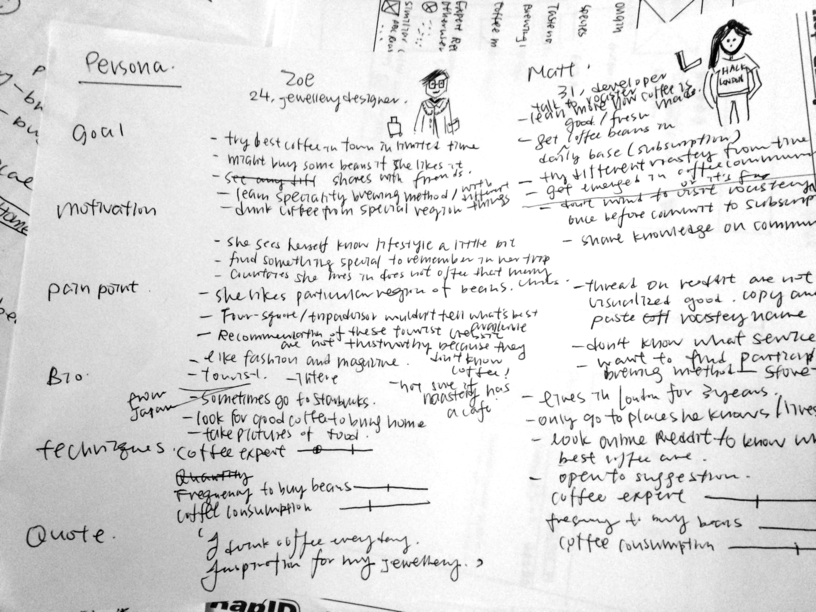 Persona.
Zoe
24, jewellery designer.
Matt.
31, developer
HACK
LONDON
Goal
- try best coffee in town in limited time
- might buy some beans if she likes it
- shares with friends.
- learn speciality brewing method / with different things
- drink coffee from special region
talk to roaster
- learn more how coffee is
good / fresh made
- get coffee beans in
daily base (subscription)
- try different roastery from time
- got emerged in coffee commun
or it's fun
motivation
- she sees herself know lifestyle a little bit
- find something special to remember in her trip
- countries she lives in does not offer that many
- don't mind to visit roastery
once before commit to subscrip
- share knowledge on commun
pain point.
- she likes particular region of beans.
- Four-square / tripadvisor wouldn't tell what's best
- Recommendation of these tourist website
are not trustworthy because they
don't know
coffee!
- not sure if
roasters has
a cafe.
- thread on reddit are not
visualized good. copy an
paste roastery name
- don't know what service
- want to find particul
brewing method - store
Bio.
- like fashion and magazine.
- tourist.
from
Japan
- sometimes go to Starbucks.
- look for good coffee to bring home
- take pictures of food.
- lives in London for 3 years.
- only go to places he knows / lives
- look online Reddit to know wh
best coffee are.
- open to suggestion.
techniques.
coffee expert
Quantity
Frequency to buy beans
coffee consumption
coffee expert
frequency to buy beans
coffee consumption
Quote.
"I drink coffee everyday.
Inspiration for my jewellery."
Coffee
Brewing
Taste
species
origin
rapid